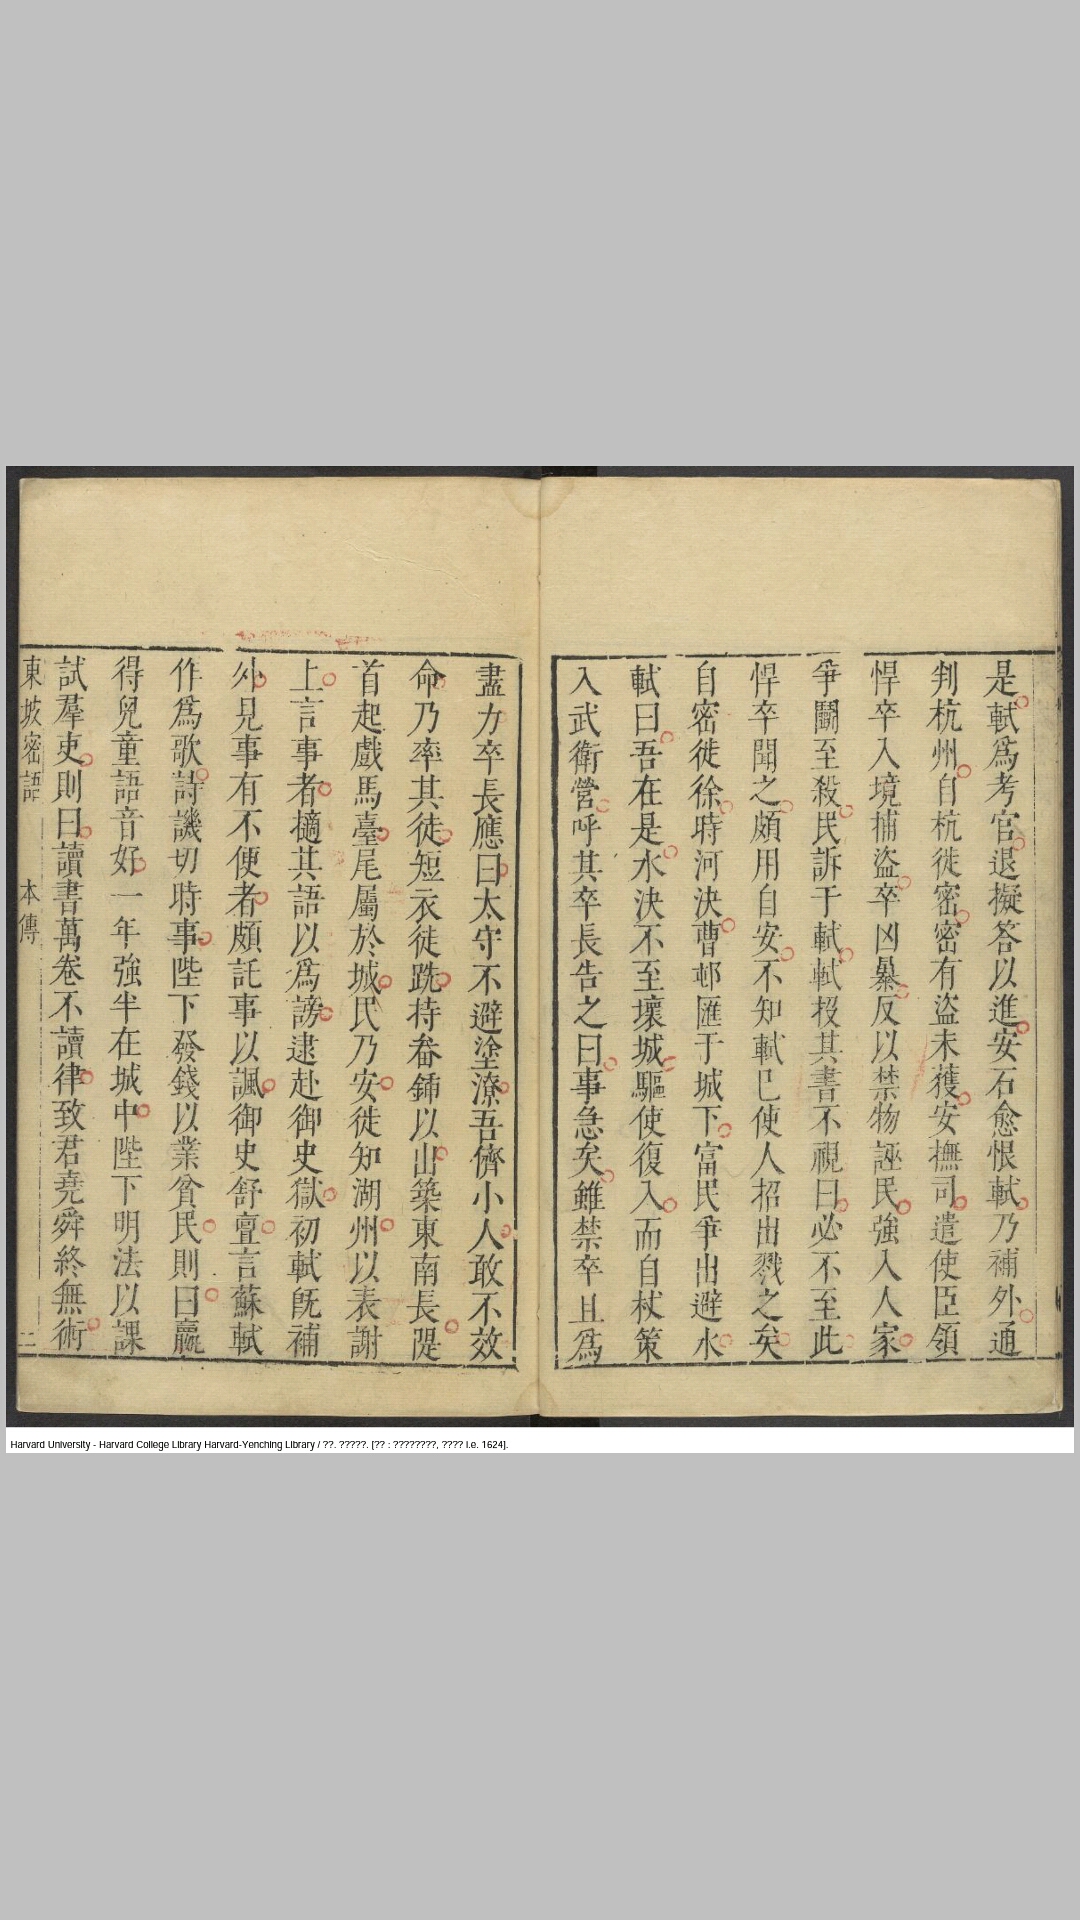 是軾爲考官退擬答以進安石愈恨軾乃補外通
判杭州自杭徙密密有盜未獲安撫司遣使臣領
悍卒入境捕盜卒凶暴反以禁物誣民強入人家
爭鬭至殺民訴于軾軾投其書不視曰必不至此
悍卒聞之頗用自安不知軾已使人招出戮之矣
自密徙徐時河決曹邨匯于城下富民爭出避水
軾曰吾在是水決不至壞城驅使復入而自杖策
入武衛營呼其卒長告之曰事急矣雖禁卒且爲
盡力卒長應曰太守不避塗潦吾儕小人敢不效
命乃率其徒短衣徒跣持畚鍤以出築東南長隄
首起戲馬臺尾屬於城民乃安徙知湖州以表謝
上言事者擿其語以爲謗逮赴御史獄初軾旣補
外見事有不便者頗託事以諷御史舒亶言蘇軾
作爲歌詩譏切時事陛下發錢以業貧民則曰贏
得兒童語音好一年強半在城中陛下明法以課
試羣吏則曰讀書萬卷不讀律致君堯舜終無術
東坡密語 本傳 二
Harvard University - Harvard College Library Harvard-Yenching Library / ??. ?????. [?? : ????????, ???? i.e. 1624].